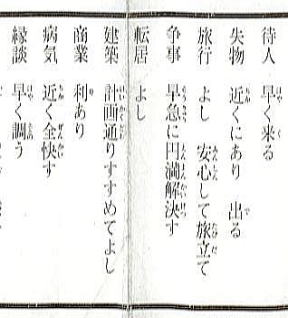 待人 早く来る
失物 近くにあり 出る
旅行 よし 安心して旅立て
争事 早急に円満解決す
転居 よし
建築 計画通りすすめてよし
商業 利あり
病気 近く全快す
縁談 早く調う